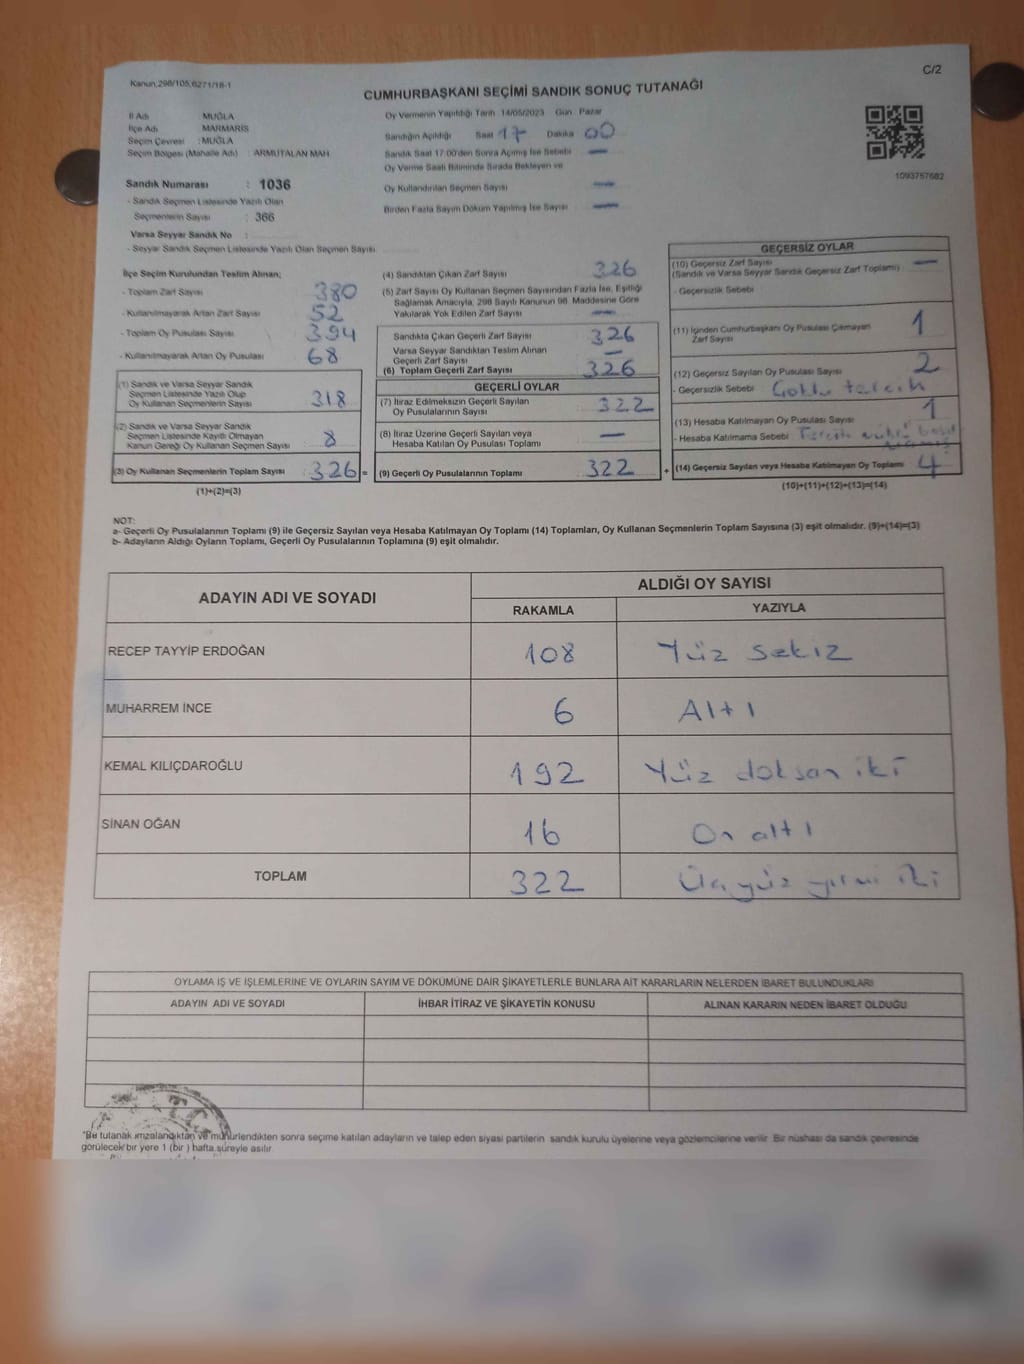 Kanun:298/105,6271/18-1
C/2
CUMHURBAŞKANI SEÇİMİ SANDIK SONUÇ TUTANAĞI
İl Adı MUĞLA
İlçe Adı MARMARİS
Seçim Çevresi : MUĞLA
Seçim Bölgesi (Mahalle Adı) : ARMUTALAN MAH.
Sandık Numarası : 1036
- Sandık Seçmen Listesinde Yazılı Olan
Seçmenlerin Sayısı : 366
Varsa Seyyar Sandık No :
- Seyyar Sandık Seçmen Listesinde Yazılı Olan Seçmen Sayısı
Oy Vermenin Yapıldığı Tarih 14/05/2023 Gün Pazar
Sandığın Açıldığı Saat 17 Dakika 00
Sandık Saat 17:00'den Sonra Açılmış İse Sebebi —
Oy Verme Saati Bitiminde Sırada Bekleyen ve
Oy Kullandırılan Seçmen Sayısı —
Birden Fazla Sayım Döküm Yapılmış İse Sayısı —
1093757682
İlçe Seçim Kurulundan Teslim Alınan;
- Toplam Zarf Sayısı 380
- Kullanılmayarak Artan Zarf Sayısı 52
- Toplam Oy Pusulası Sayısı 394
- Kullanılmayarak Artan Oy Pusulası 68
(1) Sandık ve Varsa Seyyar Sandık
Seçmen Listesinde Yazılı Olup
Oy Kullanan Seçmenlerin Sayısı 318
(2) Sandık ve Varsa Seyyar Sandık
Seçmen Listesinde Kayıtlı Olmayan
Kanun Gereği Oy Kullanan Seçmen Sayısı 8
(3) Oy Kullanan Seçmenlerin Toplam Sayısı 326 =
(1)+(2)=(3)
(4) Sandıktan Çıkan Zarf Sayısı 326
(5) Zarf Sayısı Oy Kullanan Seçmen Sayısından Fazla İse, Eşitliği
Sağlamak Amacıyla, 298 Sayılı Kanunun 98. Maddesine Göre
Yakılarak Yok Edilen Zarf Sayısı —
Sandıkta Çıkan Geçerli Zarf Sayısı 326
Varsa Seyyar Sandıktan Teslim Alınan
Geçerli Zarf Sayısı —
(6) Toplam Geçerli Zarf Sayısı 326
GEÇERLİ OYLAR
(7) İtiraz Edilmeksizin Geçerli Sayılan
Oy Pusulalarının Sayısı 322
(8) İtiraz Üzerine Geçerli Sayılan veya
Hesaba Katılan Oy Pusulası Toplamı —
(9) Geçerli Oy Pusulalarının Toplamı 322 +
GEÇERSİZ OYLAR
(10) Geçersiz Zarf Sayısı —
(Sandık ve Varsa Seyyar Sandık Geçersiz Zarf Toplamı)
- Geçersizlik Sebebi
(11) İçinden Cumhurbaşkanı Oy Pusulası Çıkmayan 1
Zarf Sayısı
(12) Geçersiz Sayılan Oy Pusulası Sayısı 2
- Geçersizlik Sebebi Çoklu tercih
(13) Hesaba Katılmayan Oy Pusulası Sayısı 1
- Hesaba Katılmama Sebebi Tercih mührü
(14) Geçersiz Sayılan veya Hesaba Katılmayan Oy Toplamı 4
(10)+(11)+(12)+(13)=(14)
NOT:
a- Geçerli Oy Pusulalarının Toplamı (9) ile Geçersiz Sayılan veya Hesaba Katılmayan Oy Toplamı (14) Toplamları, Oy Kullanan Seçmenlerin Toplam Sayısına (3) eşit olmalıdır. (9)+(14)=(3)
b- Adayların Aldığı Oyların Toplamı, Geçerli Oy Pusulalarının Toplamına (9) eşit olmalıdır.
ADAYIN ADI VE SOYADI ALDIĞI OY SAYISI
RAKAMLA YAZIYLA
RECEP TAYYİP ERDOĞAN 108 Yüz sekiz
MUHARREM İNCE 6 Altı
KEMAL KILIÇDAROĞLU 192 Yüz doksan iki
SİNAN OĞAN 16 On altı
TOPLAM 322 Üçyüz yirmi iki
OYLAMA İŞ VE İŞLEMLERİNE VE OYLARIN SAYIM VE DÖKÜMÜNE DAİR ŞİKAYETLERLE BUNLARA AİT KARARLARIN NELERDEN İBARET BULUNDUKLARI
ADAYIN ADI VE SOYADI İHBAR İTİRAZ VE ŞİKAYETİN KONUSU ALINAN KARARIN NEDEN İBARET OLDUĞU
T.C.
"Bu tutanak imzalandıktan ve mühürlendikten sonra seçime katılan adayların ve talep eden siyasi partilerin sandık kurulu üyelerine veya gözlemcilerine verilir. Bir nüshası da sandık çevresinde
görülecek bir yere 1 (bir) hafta süreyle asılır.